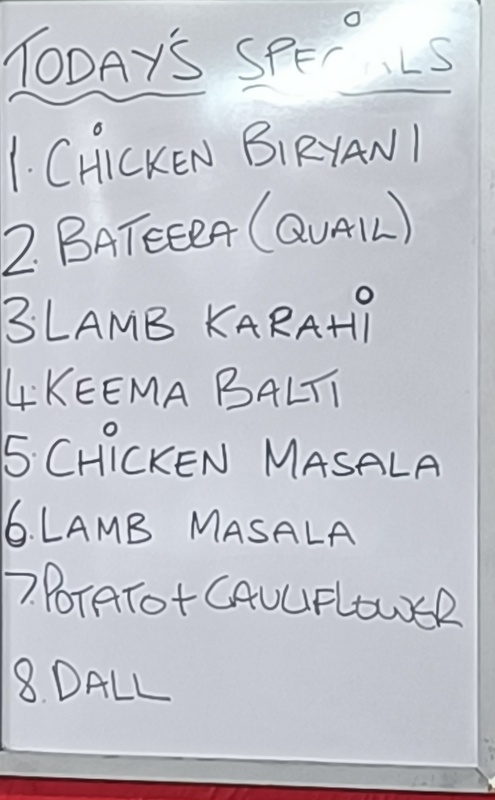 TODAY'S SPECIALS
1. CHICKEN BIRYANI
2. BATEERA (QUAIL)
3. LAMB KARAHI
4. KEEMA BALTI
5. CHICKEN MASALA
6. LAMB MASALA
7. POTATO + CAULIFLOWER
8. DALL